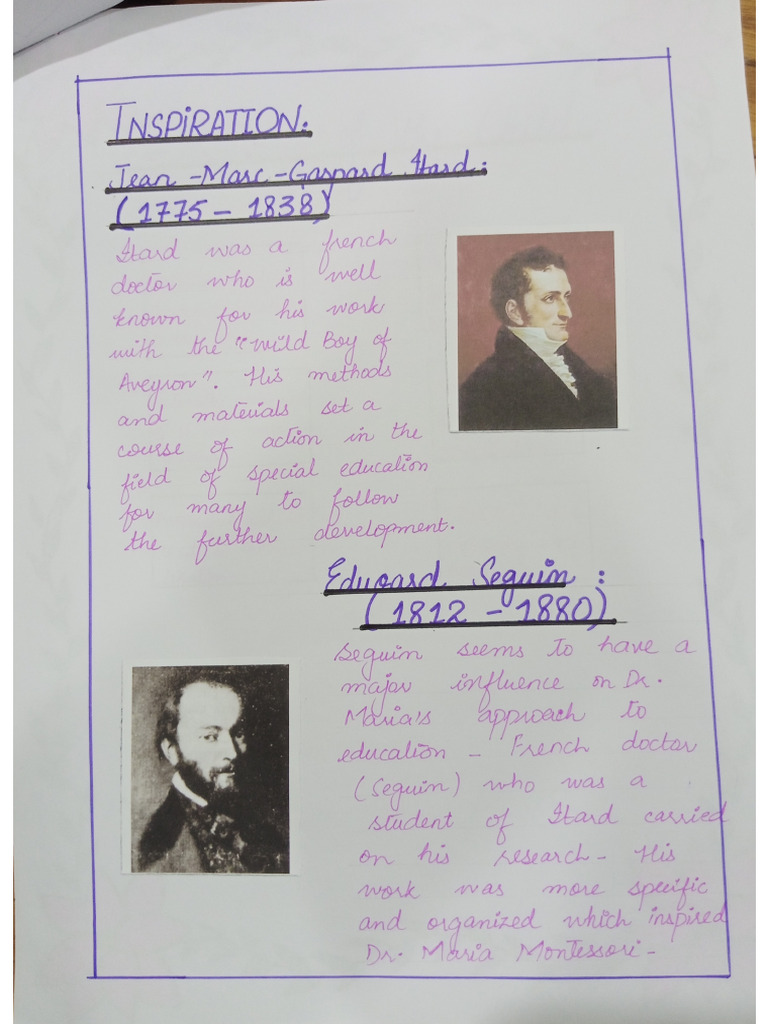 INSPIRATION.
Jean-Marc-Gaspard Itard:
(1775 - 1838)
Itard was a french
doctor who is well
known for his work
with the "Wild Boy of
Aveyron". His methods
and materials set a
course of action in the
field of special education
for many to follow
the further development.
Eduoard Seguin :
(1812 - 1880)
Seguin seems to have a
major influence on Dr.
Maria's approach to
education - French doctor
(Seguin) who was a
student of Itard carried
on his research - His
work was more specific
and organized which inspired
Dr. Maria Montessori -